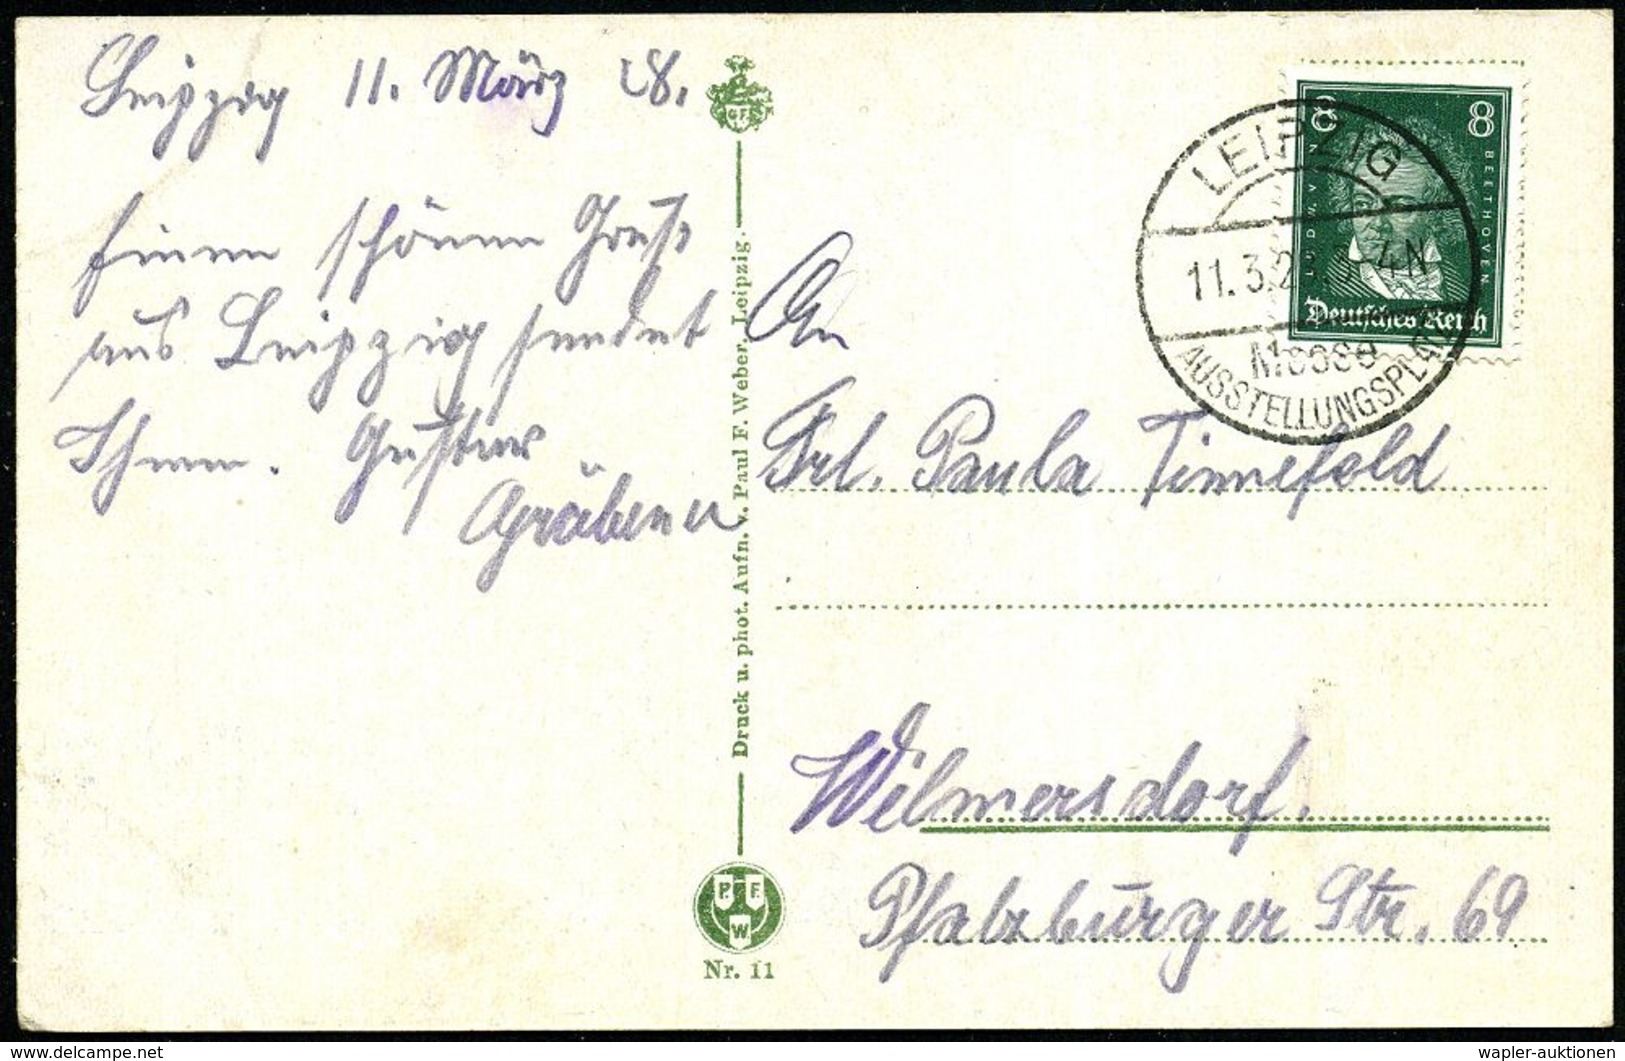 Leipzig 11. März 28.
Einen schönen Gruß
aus Leipzig sendet
Ihnen. Gustav
Gräbener
Druck u. phot. Aufn. v. Paul F. Weber, Leipzig.
P. F.
W
Nr. 11
LEIPZIG
11.3.2 4N
Messe
AUSSTELLUNGSPLATZ
8 8
LUDW. V. N
BEETHOVEN
Deutsches Reich
An
Frl. Paula Tinnefeld
Wilmersdorf.
Pfalzburger Str. 69
wapler-auktionen